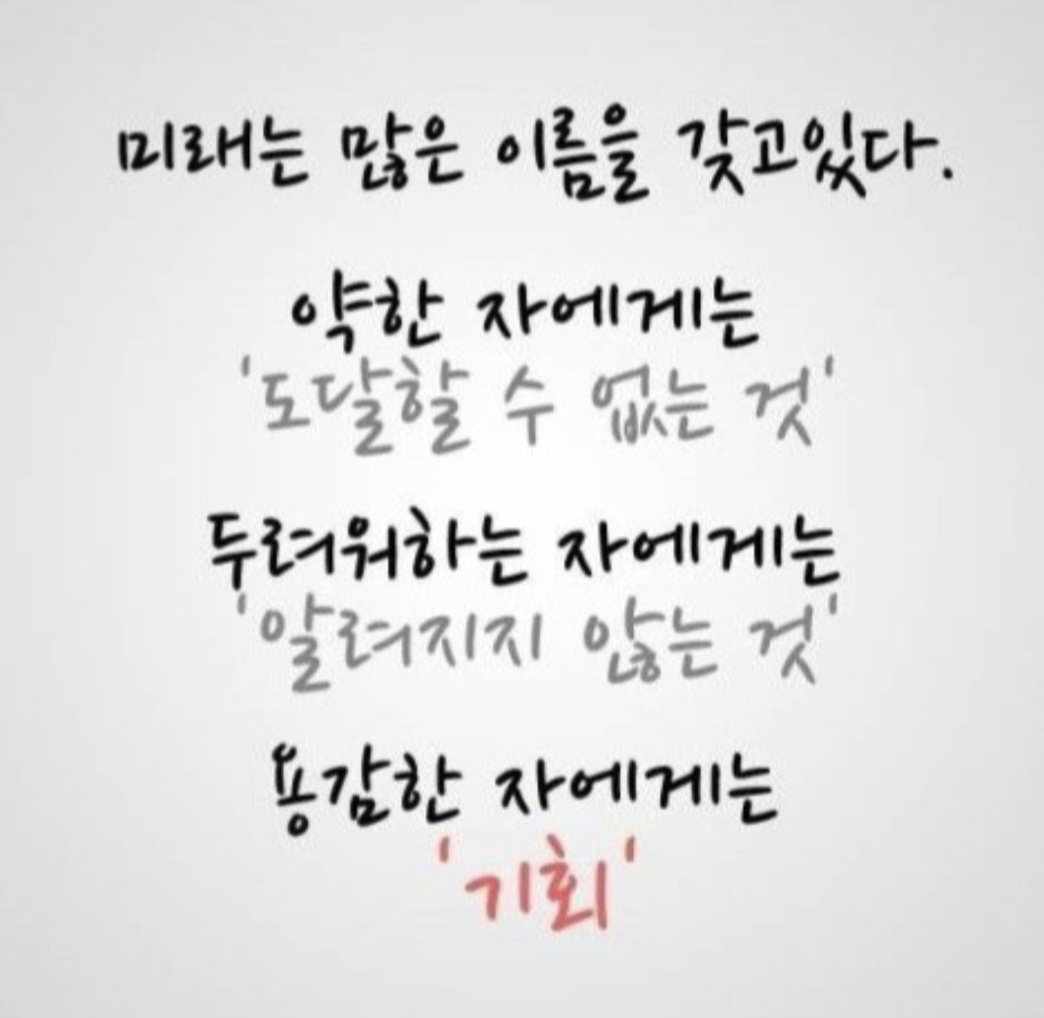 미래는 많은 이름을 갖고있다.
약한 자에게는
'도달할 수 없는 것'
두려워하는 자에게는
'알려지지 않는 것'
용감한 자에게는
'기회'